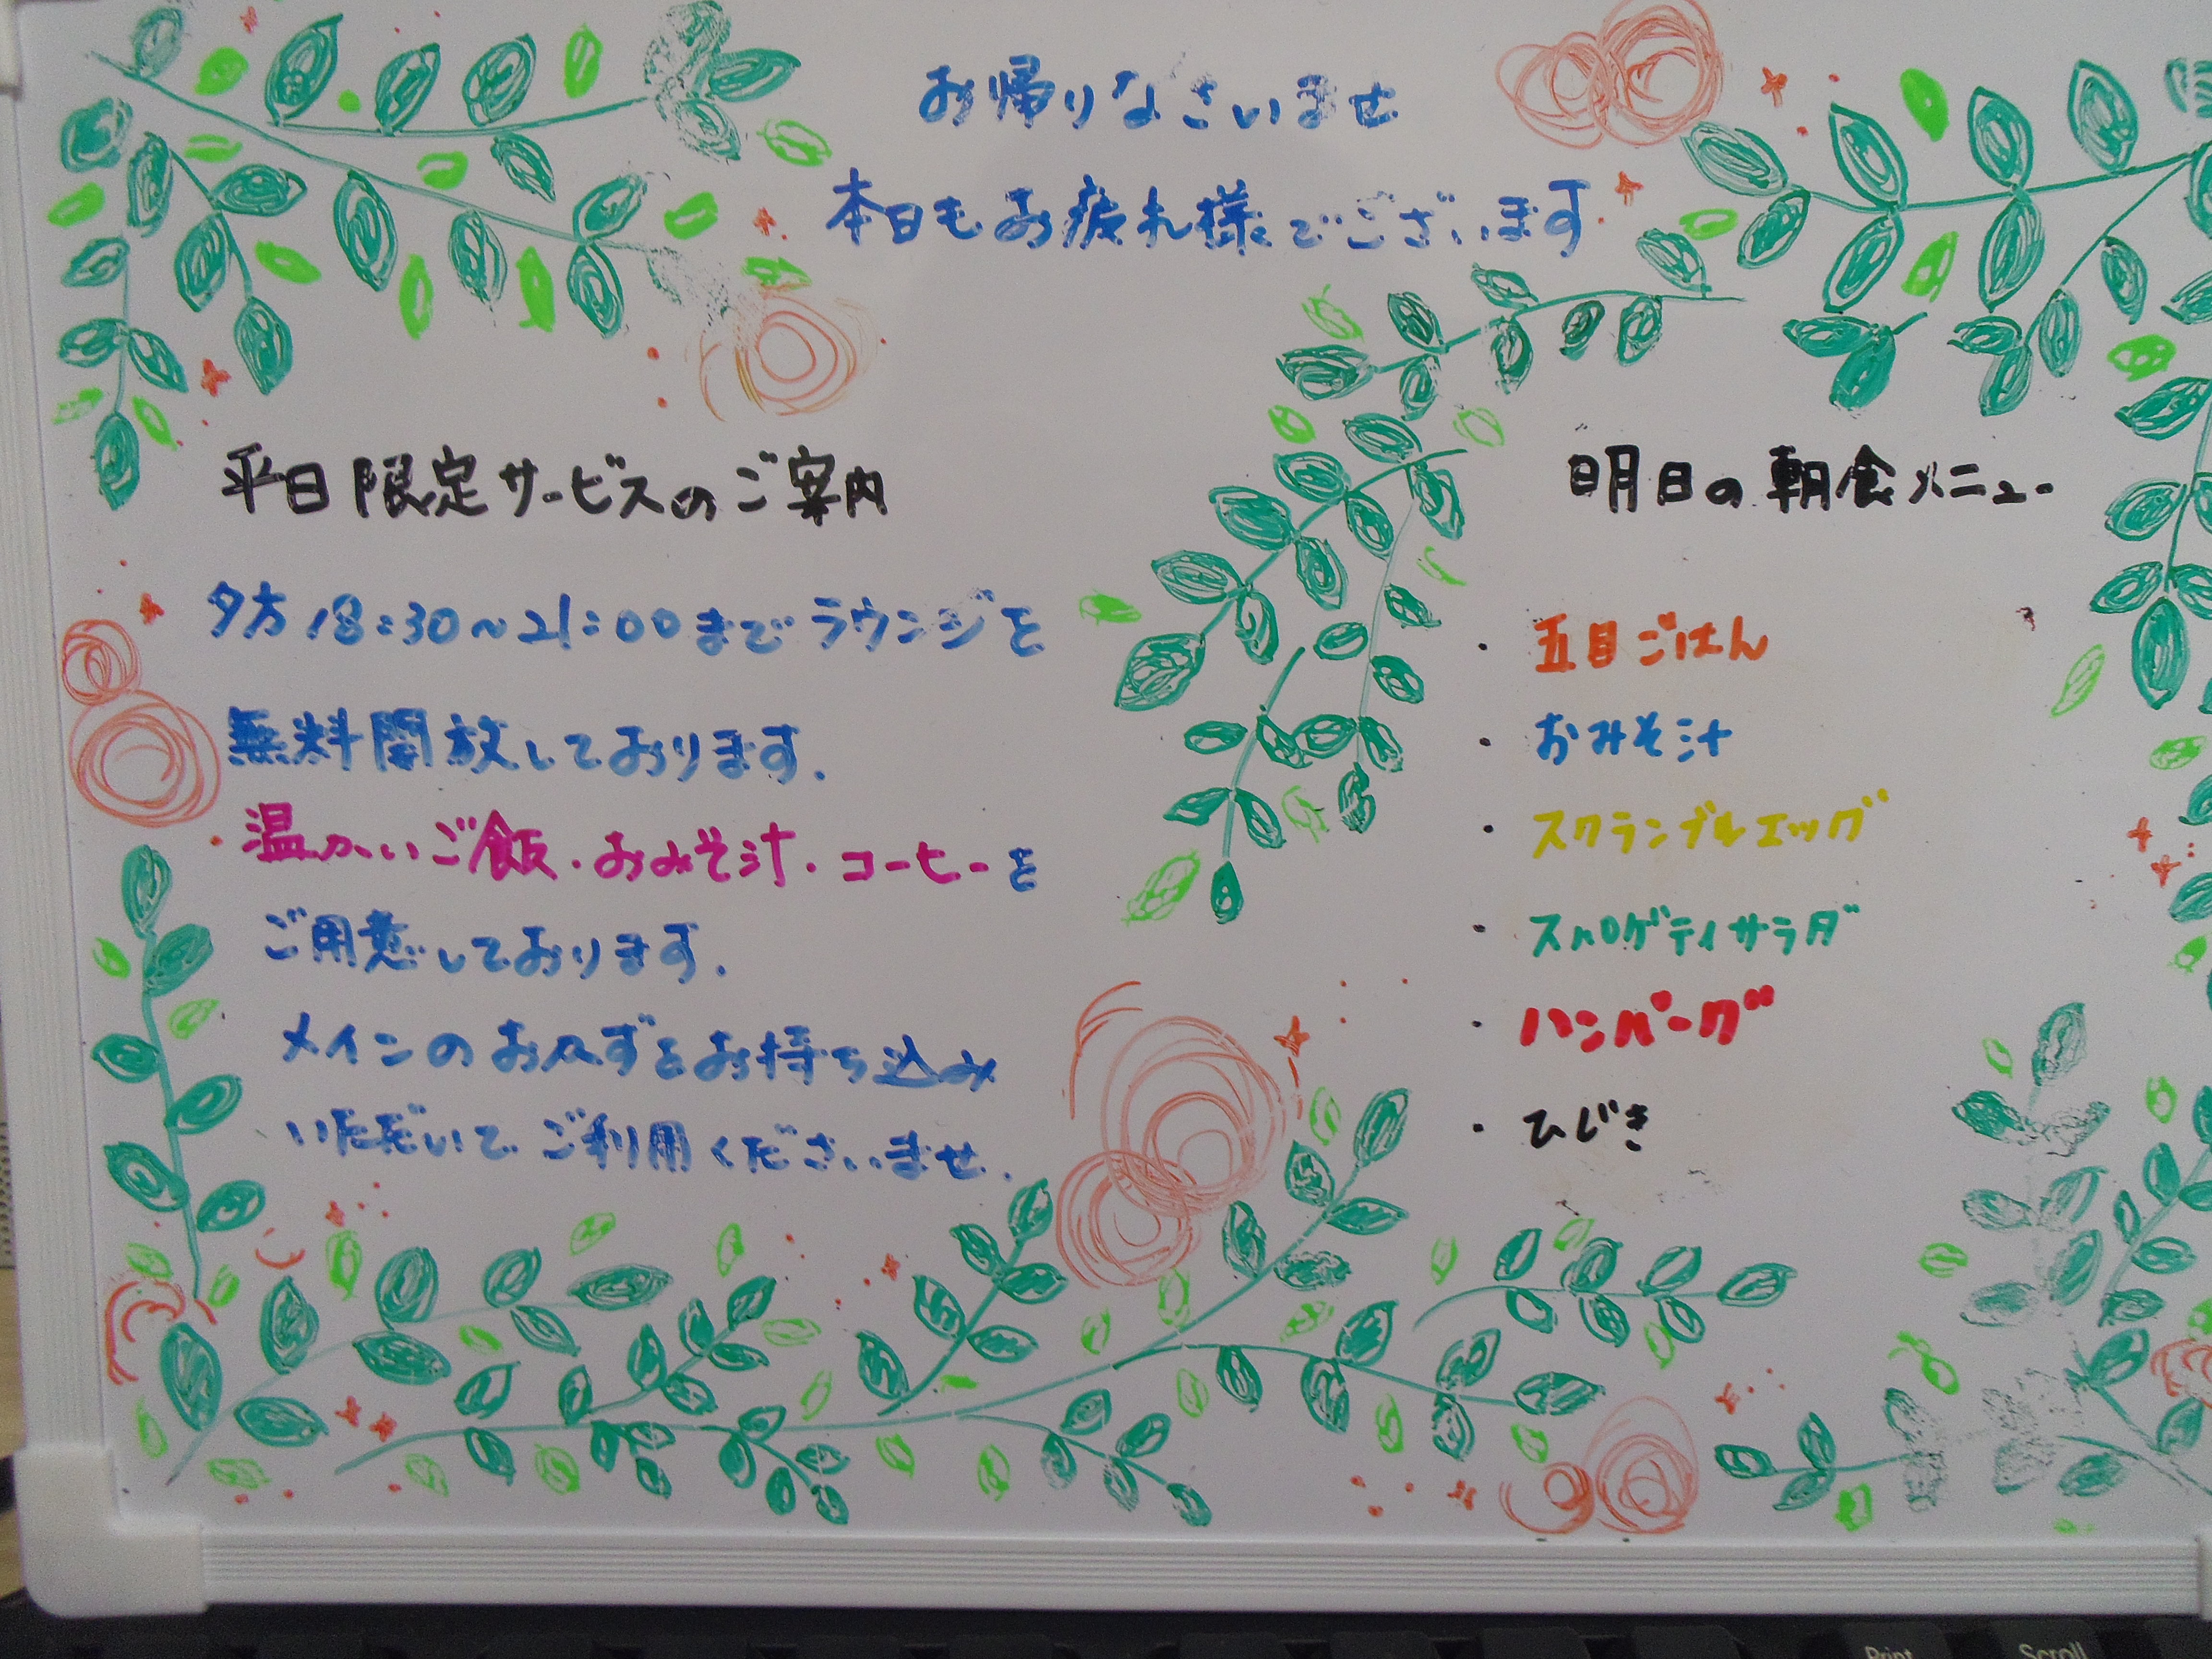 お帰りなさいませ
本日もお疲れ様でございます
平日限定サービスのご案内
夕方18:30~21:00までラウンジを
無料開放しております.
温かいご飯・おみそ汁・コーヒーを
ご用意しております.
メインのおかずをお持ち込み
いただいてご利用くださいませ.
明日の朝食メニュー
・五目ごはん
・おみそ汁
・スクランブルエッグ
・スパゲティサラダ
・ハンバーグ
・ひじき
Print
Scroll